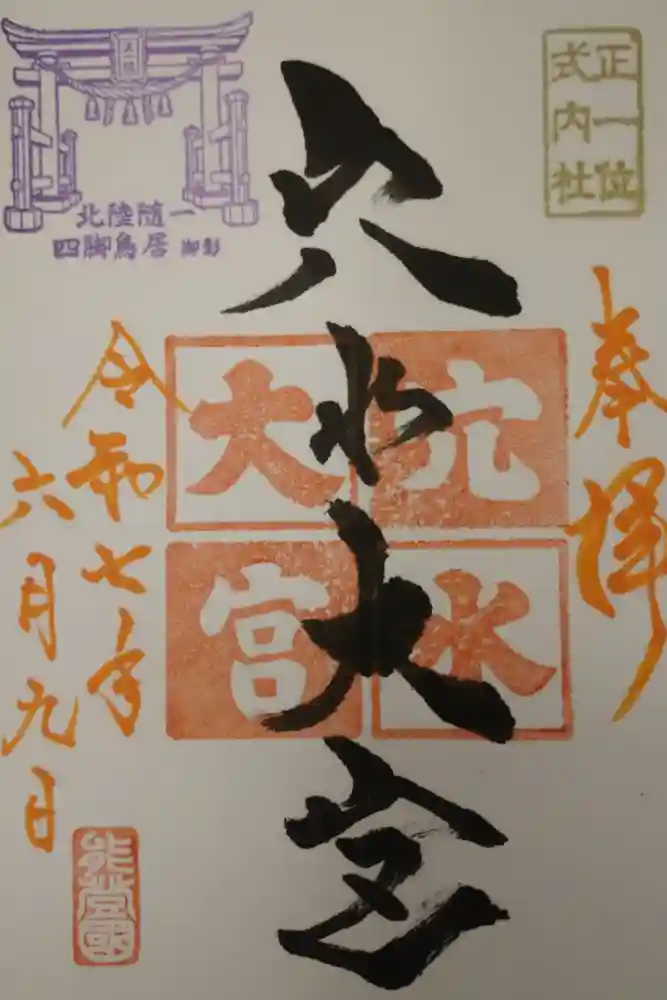 正一位
式内社
奉拝
穴水大宮
穴水
大宮
北陸随一
四脚鳥居 御影
令和七年
六月九日
能登國